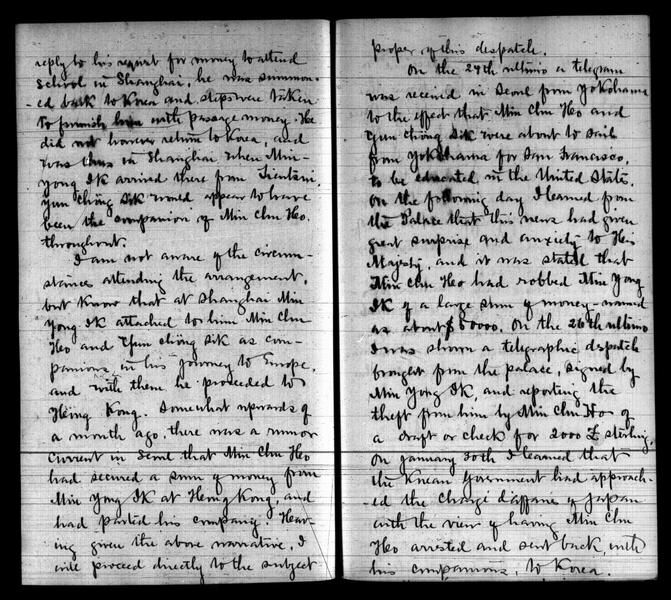 reply to his request for money to attend
school in Shanghai, he was summon-
-ed back to Korea and steps were taken
to furnish him with passage money. He
did not however return to Korea, and
was thus in Shanghai when Min-
yong Ik arrived there from Tientsin.
Yun Chöng Sik would appear to have
been the companion of Min Chu Ho,
throughout.
I am not aware of the circum-
stances attending the arrangement,
but know that at Shanghai Min
Yong Ik attached to him Min Chu
Ho and Yun Chöng Sik as com-
panions in his journey to Europe,
and with them he proceeded to
Hong Kong. Somewhat upwards of
a month ago, there was a rumor
current in Seoul that Min Chu Ho
had secured a sum of money from
Min Yong Ik at Hong Kong, and
had parted his company. Hav-
ing given the above narrative, I
will proceed directly to the subject
proper of this despatch.
On the 24th ultimo a telegram
was received in Seoul from Yokohama
to the effect that Min Chu Ho and
Yun Chöng Sik were about to sail
from Yokohama for San Francisco,
to be educated in the United States.
On the following day I learned from
the Palace that this news had given
great surprise and anxiety to His
Majesty, and it was stated that
Min Chu Ho had robbed Min Yong
Ik of a large sum of money - named
as about $ 8000. On the 26th ultimo
I was shown a telegraphic dispatch
brought from the palace, signed by
Min Yong Ik, and reporting the
theft from him by Min Chu Ho of
a draft or check for 2000 £ sterling.
On January 30th I learned that
the Korean Government had approach-
-ed the Chargé d'affaires of Japan
with the view of having Min Chu
Ho arrested and sent back, with
his companions, to Korea.